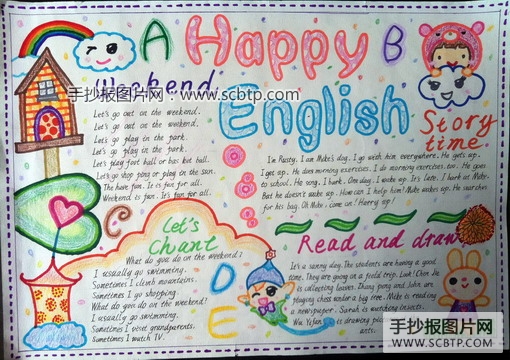 A Happy B
English
Weekend
手抄报图片网：www.scbtp.com
Let's go out on the weekend.
Let's go out on the weekend.
Let's go play in the park.
Let's go play in the park.
Let's play foot ball or bas ket ball.
Let's go shop ping or play in the sun.
The have fun. It is fun for all.
Weekend is fun. It's fun for all.
Story
time.
I'm Rusty. I am Mike's dog. I go with him everywhere. He gets up.
I get up. He does morning exercises. I do morning exercises, too. He goes
to school. He sing. I bark. One day, I wake up. It's late. I bark at Mike.
But he doesn't wake up. How can I help him? Mike wakes up. He searches
for his bag. Oh Mike, come on! Hurry up!
C
Let's
Chant
What do you do on the weekend?
I usually go swimming.
Sometimes I climb mountains.
Sometimes I go shopping.
What do you do on the weekend?
I usually go swimming.
Sometimes I visit grandparents.
Sometimes I watch TV.
D
E
Read and draw
It's a sunny day. The students are having a good
time. They are on a field trip. Look! Chen Jie
is collecting leaves. Zhang peng and John are
playing chess under a big tree. Mike is reading
a newspaper. Sarah is watching insects.
Wu Yifan is drawing
ants.
手抄报图片网
WWW.SCBTP.COM